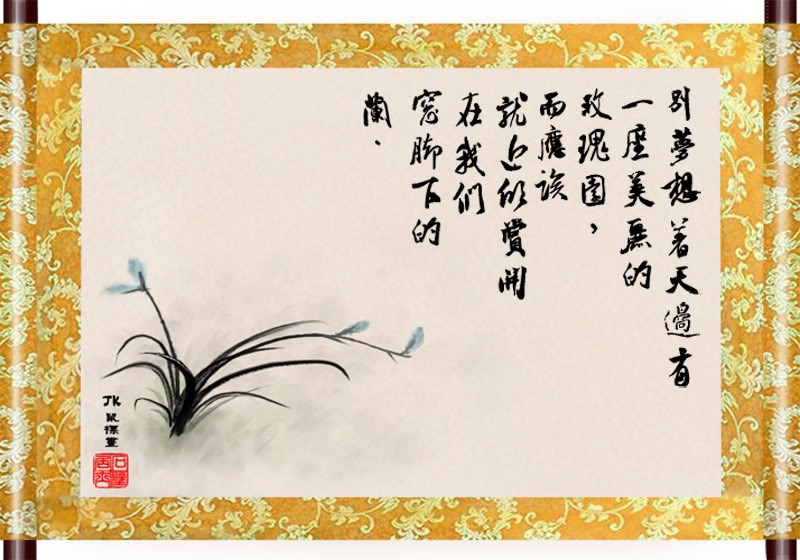 別夢想著天邊有
一座美麗的
玫瑰園，
而應該
就近欣賞開
在我們
窓腳下的
蘭．
JK
鼠標畫